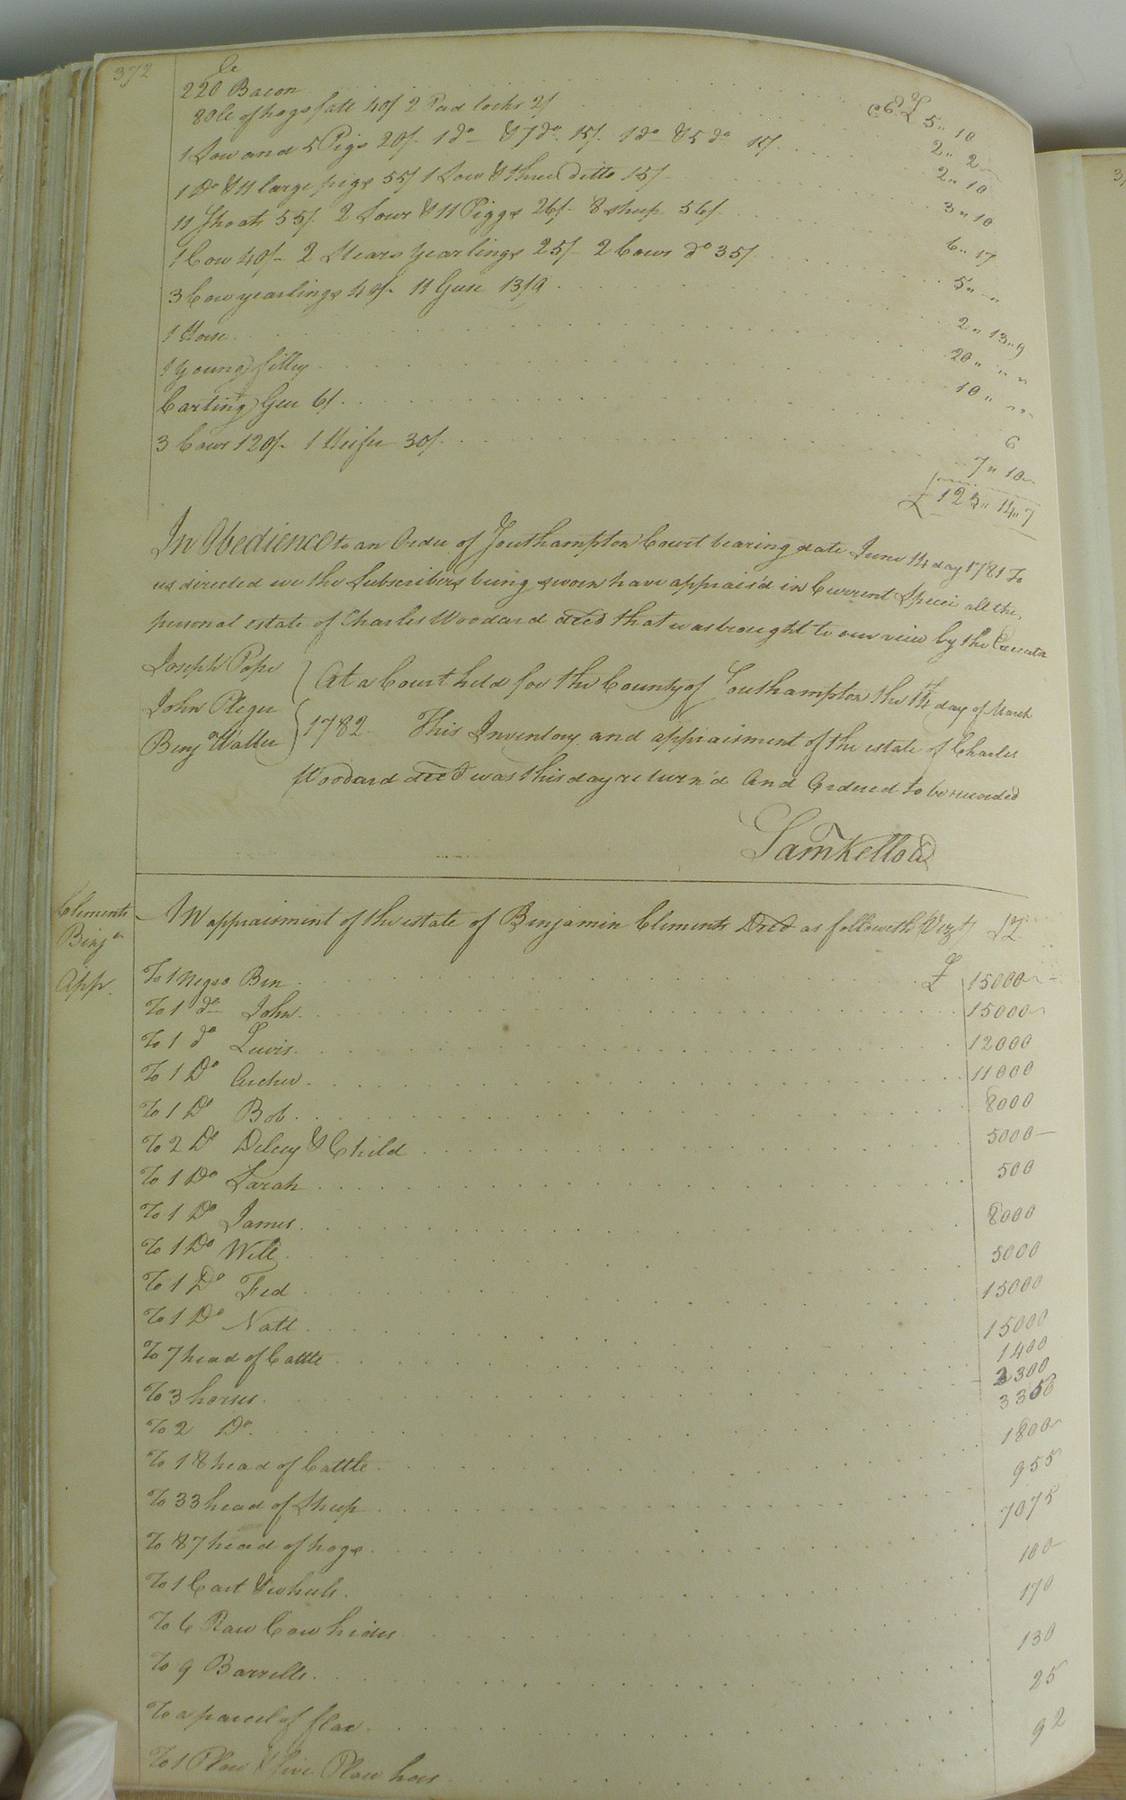 372
lb
220 Bacon £ 5 " 10
80 lb of hogs fatt 40/ 2 Pad locks 2/ 2 " 2 "
1 Sow and 5 Pigs 20/. 1 do & 7 do 15/. 1 do & 5 do 15/. 2 " 10
1 Do & 11 large pigs 55/ 1 Sow & three ditto 15/ 3 " 10
11 Shoats 55/. 2 Sows & 11 Piggs 26/- 8 sheep 56/. 6 " 17
1 Cow 40/- 2 Stears Yearlings 25/- 2 Cows do 35/. 5 " "
3 Cow yearlings 40/- 11 Geese 13/9 2 " 13 " 9
1 Horse 20 " " "
1 young filley 10 " " "
Carting Gea 6/. 6
3 Cows 120/- 1 Heifer 30/. 7 " 10 "
£ 123 " 14 " 7
In Obedience to an Order of Southampton Court bearing date June 14 day 1781 To
us directed we the Subscribers being sworn have apprais'd in Current Specie all the
personal estate of Charles Woodard decd that was brought to our view by the Executor
Joseph Pope
John
Benj a Waller
At a Court held for the County of Southampton the 14th day of March
1782. This Inventory and appraisment of the estate of Charles
Woodard decd was this day return'd And Ordered to be recorded
Sam Kello
Clements
Benj a
App.
An appraisment of the estate of Benjamin Clements Decd as followeth (Vizt)
To 1 Negro Ben £ 15000
To 1 do John 15000
To 1 do Lewis 12000
To 1 Do Archer 11000
To 1 Do Bob 8000
To 2 Do Delcey & Child 5000
To 1 Do Sarah 500
To 1 Do James 8000
To 1 Do Will 5000
To 1 Do Fed 15000
To 1 Do Natt 15000
To 7 head of Cattle 1400
To 3 horses 2300
To 2 Do 3350
To 18 head of Cattle 1800
To 33 head of Sheep 955
To 87 head of hogs 7075
To 1 Cart & wheels 100
To 6 Raw Cow hides 170
To 9 Barrells 130
To a parcel of flax 25
To 1 Plow & five Plow hoes 92